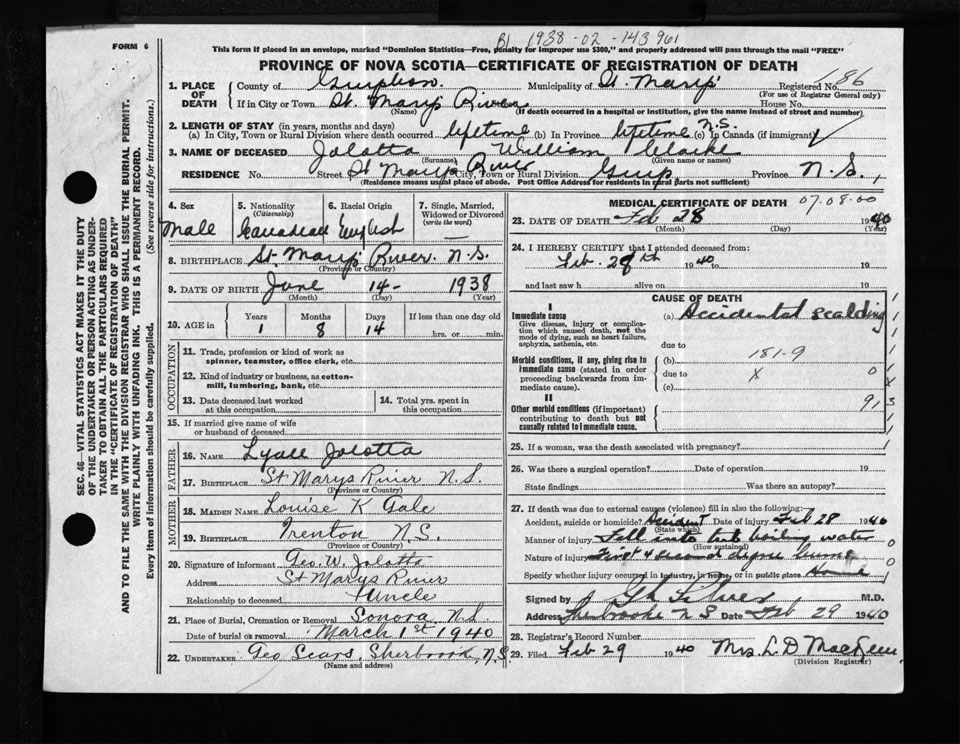 B1 1938-02-143961
FORM 6
This form if placed in an envelope, marked "Dominion Statistics—Free, penalty for improper use $300," and properly addressed will pass through the mail "FREE"
PROVINCE OF NOVA SCOTIA—CERTIFICATE OF REGISTRATION OF DEATH
186
1. PLACE OF DEATH County of Guysboro. Municipality of St. Marys Registered No.
(For use of Registrar General only)
If in City or Town St. Marys River House No.
(Name) (If death occurred in a hospital or institution, give the name instead of street and number)
2. LENGTH OF STAY (in years, months and days)
(a) In City, Town or Rural Division where death occurred lifetime (b) In Province lifetime N.S. (c) In Canada (if immigrant)
3. NAME OF DECEASED Jolotta William Clarke
(Surname) (Given name or names)
RESIDENCE No. Street St Marys River City, Town or Rural Division Guys, Province N.S.,
(Residence means usual place of abode. Post Office Address for residents in rural parts not sufficient)
4. Sex Male
5. Nationality (Citizenship) Canadian
6. Racial Origin English
7. Single, Married, Widowed or Divorced (write the word) —
8. BIRTHPLACE St. Marys River. N.S.
(Province or Country)
9. DATE OF BIRTH June 14- 1938
(Month) (Day) (Year)
10. AGE in Years Months Days If less than one day old
1 8 14 hrs. or min.
OCCUPATION
11. Trade, profession or kind of work as spinner, teamster, office clerk, etc.
12. Kind of industry or business, as cotton-mill, lumbering, bank, etc.
13. Date deceased last worked at this occupation
14. Total yrs. spent in this occupation
15. If married give name of wife or husband of deceased
FATHER
16. NAME Lyall Jolotta
17. BIRTHPLACE St Marys River N.S.
(Province or Country)
MOTHER
18. MAIDEN NAME Louise K Gale
19. BIRTHPLACE Trenton N.S.
(Province or Country)
20. Signature of informant Geo. W. Jolotta
Address St Marys River
Relationship to deceased Uncle
21. Place of Burial, Cremation or Removal Sonora N.S
Date of burial or removal March 1st 1940
22. UNDERTAKER Geo Sears, Sherbrook, N.S
(Name and address)
MEDICAL CERTIFICATE OF DEATH 07.08.00
23. DATE OF DEATH Feb 28 1940
(Month) (Day) (Year)
24. I HEREBY CERTIFY that I attended deceased from:
Feb. 28th 1940 to 19
and last saw h alive on 19
CAUSE OF DEATH
I
Immediate cause (a) Accidental scalding
Give disease, injury or complication which caused death, not the mode of dying, such as heart failure, asphyxia, asthenia, etc.
due to
Morbid conditions, if any, giving rise to immediate cause (stated in order proceeding backwards from immediate cause).
(b) 181-9
due to X 0
(c)
II
Other morbid conditions (if important) contributing to death but not causally related to immediate cause.
913
25. If a woman, was the death associated with pregnancy?
26. Was there a surgical operation? Date of operation 19
State findings Was there an autopsy?
27. If death was due to external causes (violence) fill in also the following:
Accident, suicide or homicide? Accident Date of injury Feb 28 1940
(State which)
Manner of injury Fell into tub boiling water
(How sustained)
Nature of injury First & second degree burns
Specify whether injury occurred in industry, in home, or in public place Home
Signed by M.D.
Address Sherbrooke N S Date Feb 29 1940
28. Registrar's Record Number
29. Filed Feb 29 1940 Mrs. L. D
(Division Registrar)
SEC. 46—VITAL STATISTICS ACT MAKES IT THE DUTY
OF THE UNDERTAKER OR PERSON ACTING AS UNDER-
TAKER TO OBTAIN ALL THE PARTICULARS REQUIRED
IN THE "CERTIFICATE OF REGISTRATION OF DEATH"
AND TO FILE THE SAME WITH THE DIVISION REGISTRAR WHO SHALL ISSUE THE BURIAL PERMIT.
WRITE PLAINLY WITH UNFADING INK. THIS IS A PERMANENT RECORD.
Every item of information should be carefully supplied. (See reverse side for instructions.)